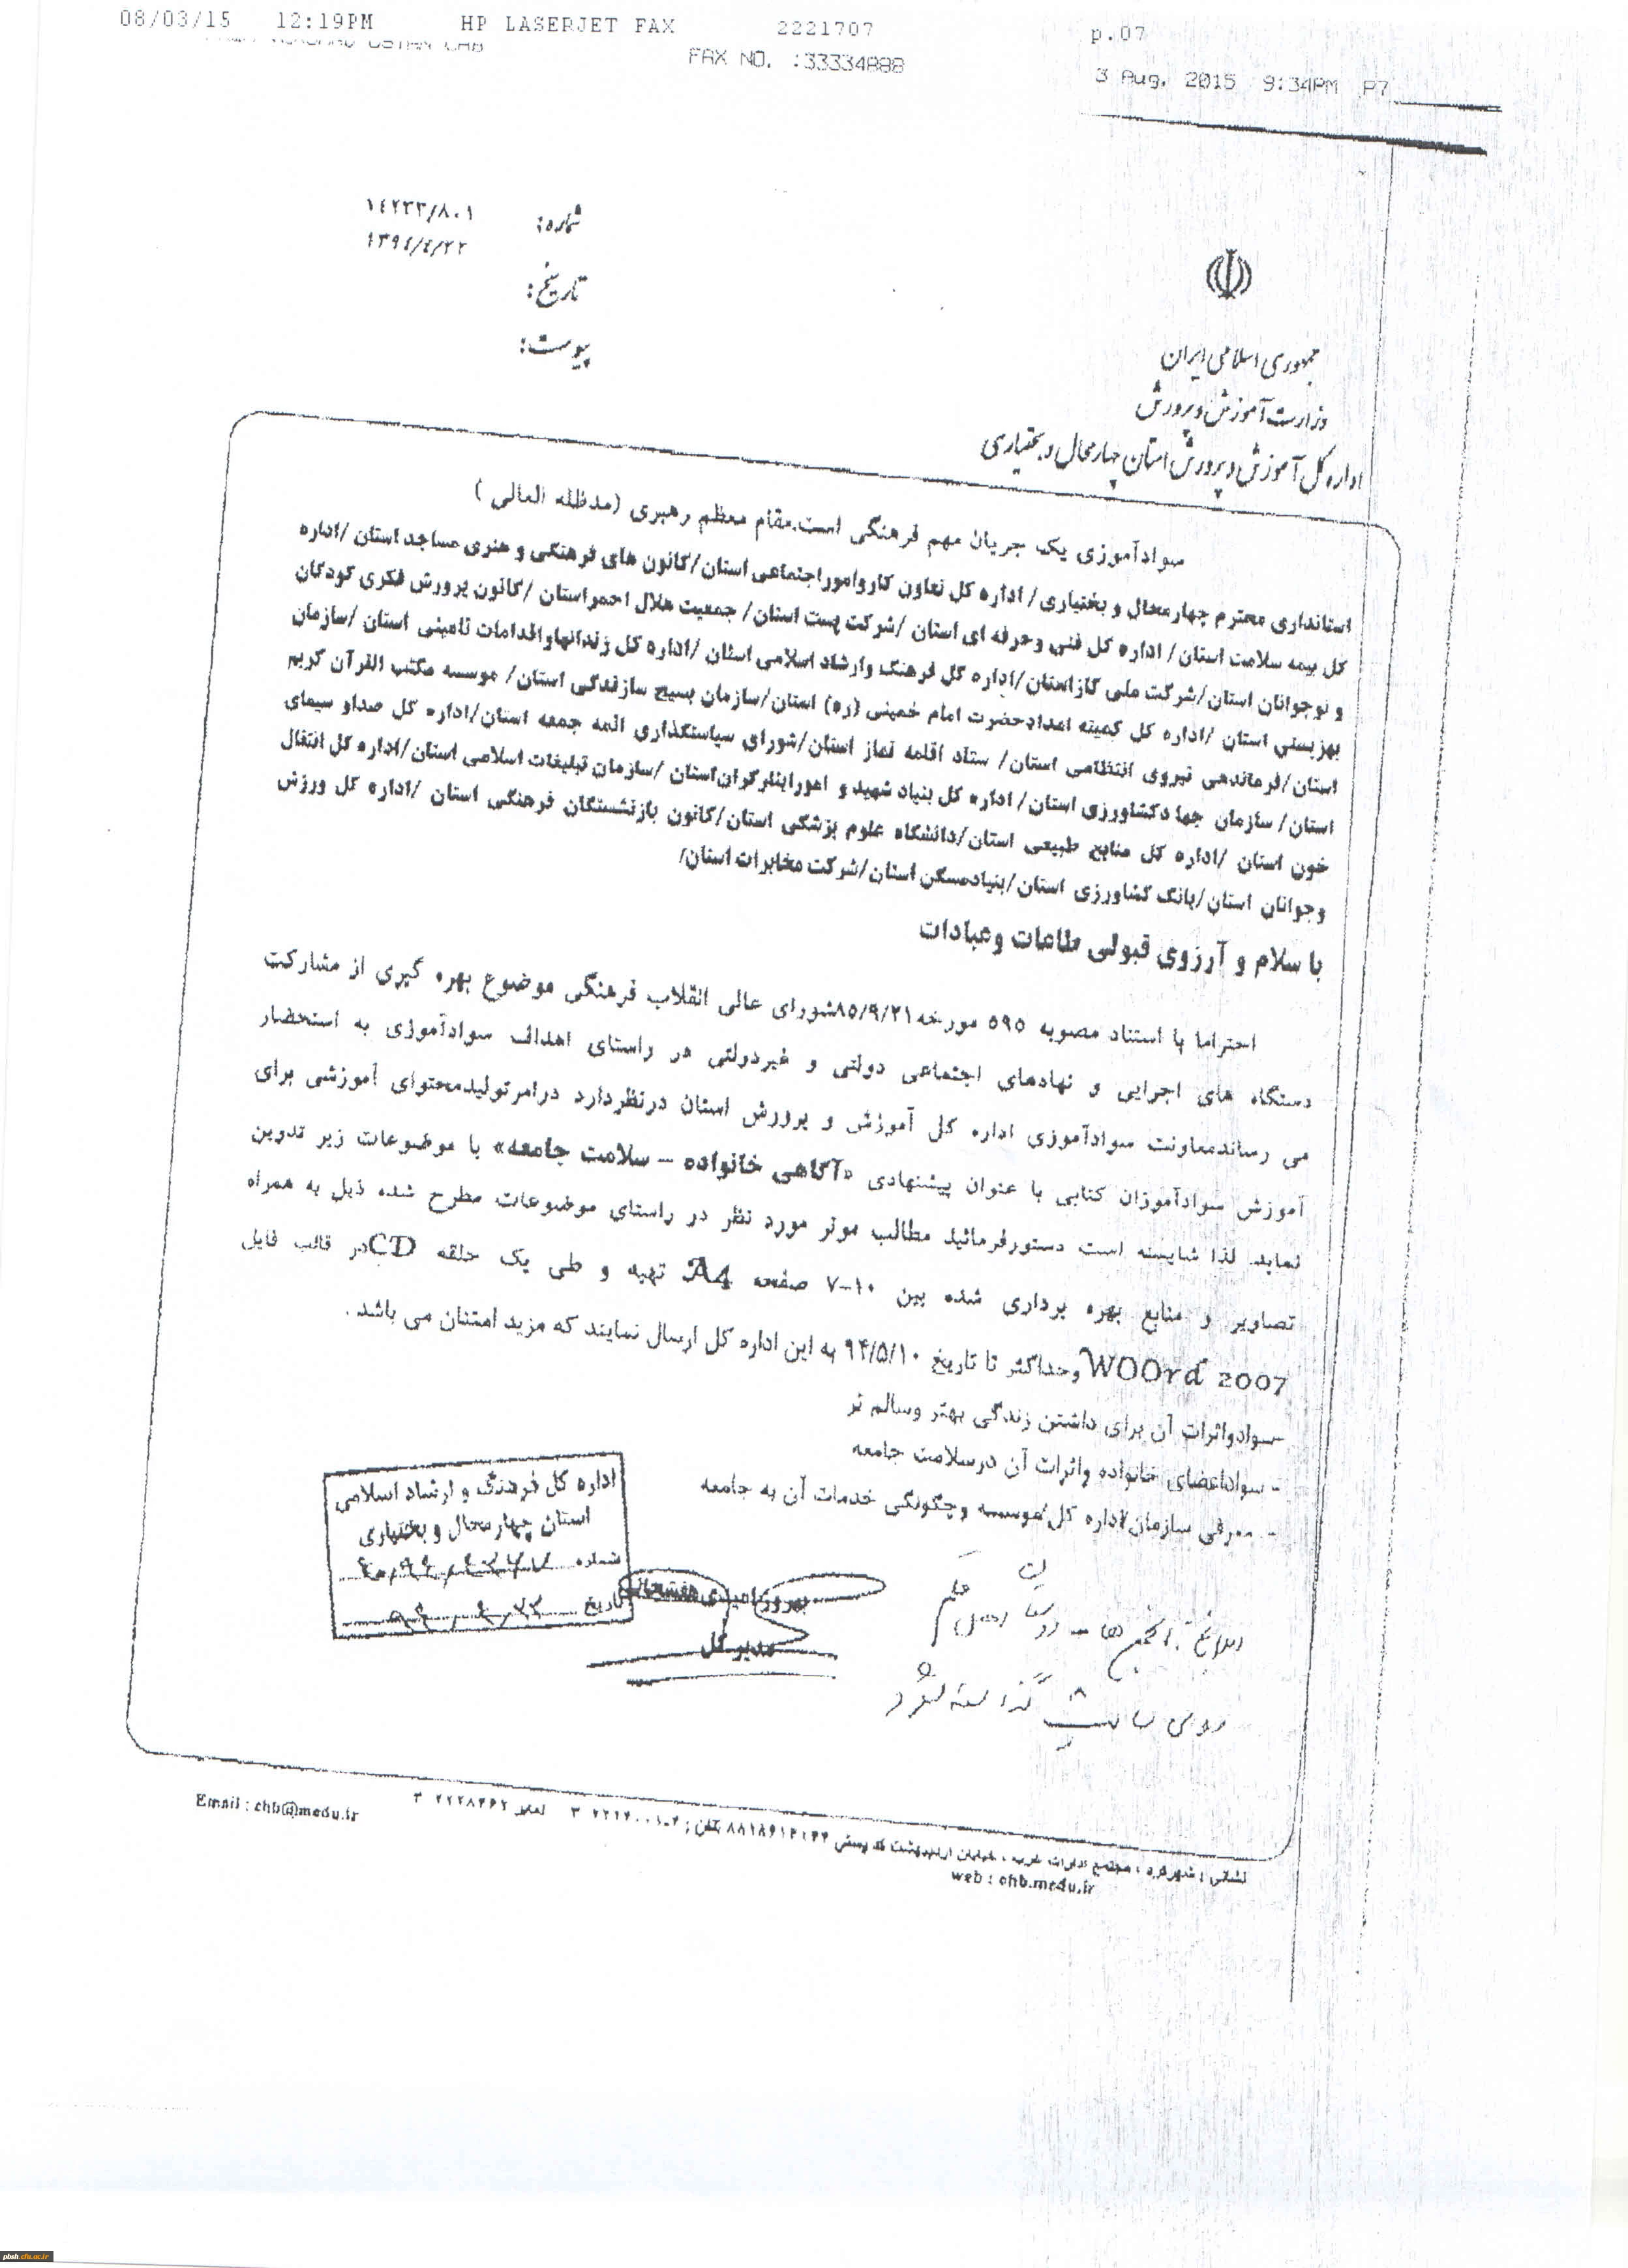 08/03/15 12:19PM HP LASERJET FAX 2221707 p.07
FAX NO. :33334888 3 Aug. 2015 9:34PM P7
شماره: ۱۴۲۳۳/۸۰۱
۱۳۹۴/۴/۲۲
تاریخ:
پیوست:
جمهوری اسلامی ایران
وزارت آموزش و پرورش
اداره کل آموزش و پرورش استان چهارمحال و بختیاری
سوادآموزی یک جریان مهم فرهنگی است.مقام معظم رهبری (مدظله العالی )
استانداری محترم چهارمحال و بختیاری/ اداره کل تعاون کارواموراجتماعی استان/کانون های فرهنگی و هنری مساجد استان /اداره
کل بیمه سلامت استان/ اداره کل فنی وحرفه ای استان /شرکت پست استان/ جمعیت هلال احمراستان /کانون پرورش فکری کودکان
و نوجوانان استان/شرکت ملی گازاستان/اداره کل فرهنگ وارشاد اسلامی استان /اداره کل زندانهاواقدامات تامینی استان /سازمان
بهزیستی استان /اداره کل کمیته امدادحضرت امام خمینی (ره) استان/سازمان بسیج سازندگی استان/ موسسه مکتب القرآن کریم
استان/فرماندهی نیروی انتظامی استان/ ستاد اقامه نماز استان/شورای سیاستگذاری ائمه جمعه استان/اداره کل صداو سیمای
استان/ سازمان جهادکشاورزی استان/ اداره کل بنیاد شهید و امورایثارگران‌استان /سازمان تبلیغات اسلامی استان/اداره کل انتقال
خون استان /اداره کل منابع طبیعی استان/دانشگاه علوم پزشکی استان/کانون بازنشستگان فرهنگی استان /اداره کل ورزش
وجوانان استان/بانک کشاورزی استان/بنیادمسکن استان/شرکت مخابرات استان/
با سلام و آرزوی قبولی طاعات وعبادات
احتراما با استناد مصوبه ۵۹۵ مورخه۸۵/۹/۲۱شورای عالی انقلاب فرهنگی موضوع بهره گیری از مشارکت
دستگاه های اجرایی و نهادهای اجتماعی دولتی و غیردولتی در راستای اهداف سوادآموزی به استحضار
می رساندمعاونت سوادآموزی اداره کل آموزش و پرورش استان درنظردارد درامرتولیدمحتوای آموزشی برای
آموزش سوادآموزان کتابی با عنوان پیشنهادی «آگاهی خانواده – سلامت جامعه» با موضوعات زیر تدوین
نماید. لذا شایسته است دستورفرمائید مطالب موثر مورد نظر در راستای موضوعات مطرح شده ذیل به همراه
تصاویر و منابع بهره برداری شده بین ۱۰-۷ صفحه A4 تهیه و طی یک حلقه CDدر قالب فایل
WOOrd 2007 وحداکثر تا تاریخ ۹۴/۵/۱۰ به این اداره کل ارسال نمایند که مزید امتنان می باشد .
-سوادواثرات آن برای داشتن زندگی بهتر وسالم تر
- سواداعضای خانواده واثرات آن درسلامت جامعه
- معرفی سازمان/اداره کل/موسسه وچگونگی خدمات آن به جامعه
اداره کل فرهنگ و ارشاد اسلامی
استان چهارمحال و بختیاری
شماره
تاریخ
بهروز امیدی هفشجانی
مدیر کل
روی سایت گذاشته شود
نشانی : شهرکرد ، مجتمع ادارات غرب ، خیابان اردیبهشت کد پستی
Email : chb@medu.ir
web : chb.medu.ir
pbsh.cfu.ac.ir